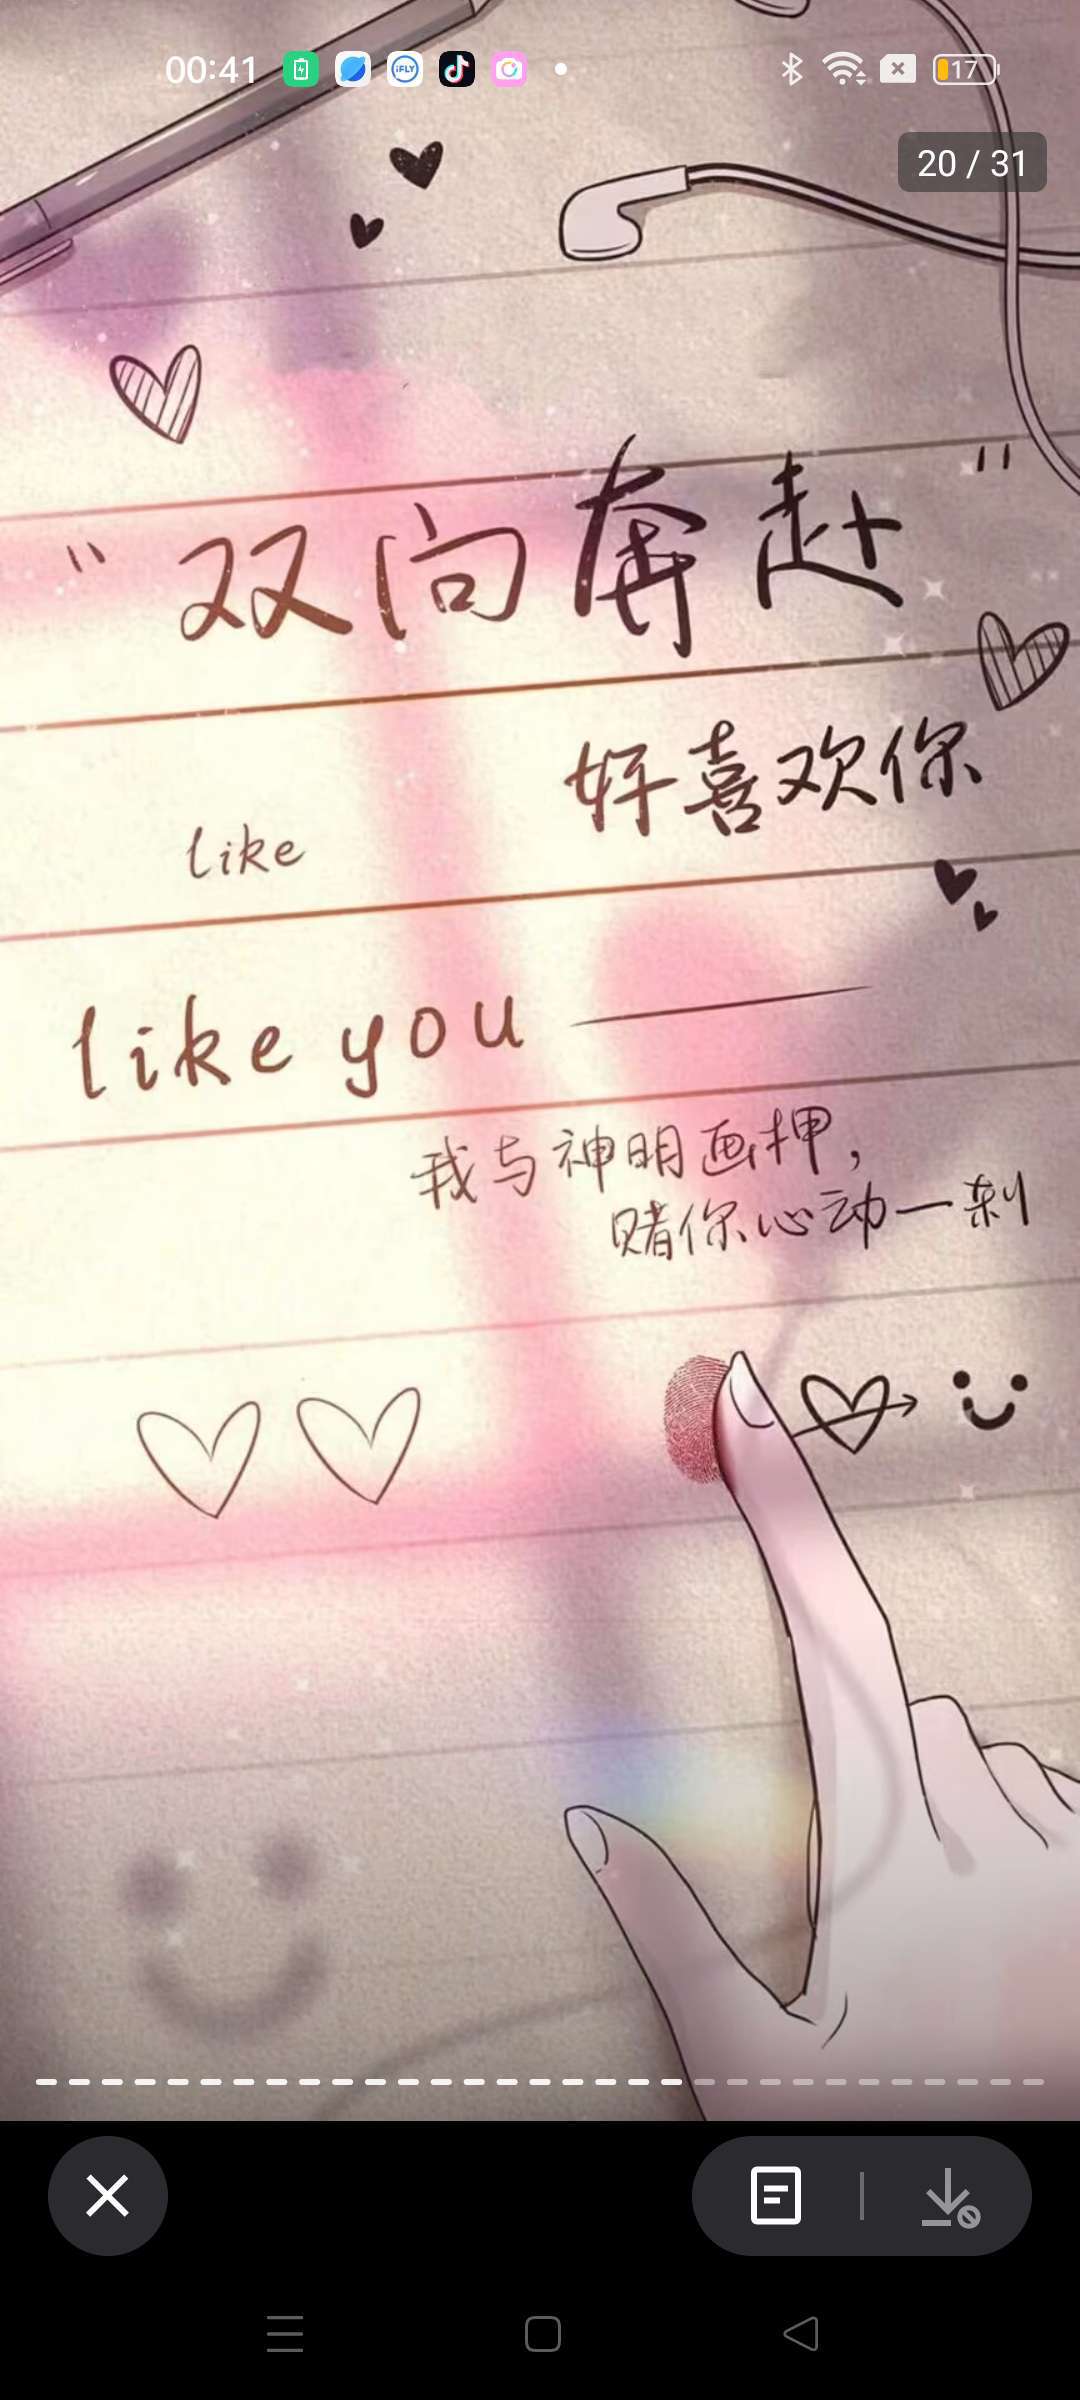 00:41
iFLY
17
20 / 31
"双向奔赴"
好喜欢你
like
like you ——
我与神明画押,
赌你心动一刹